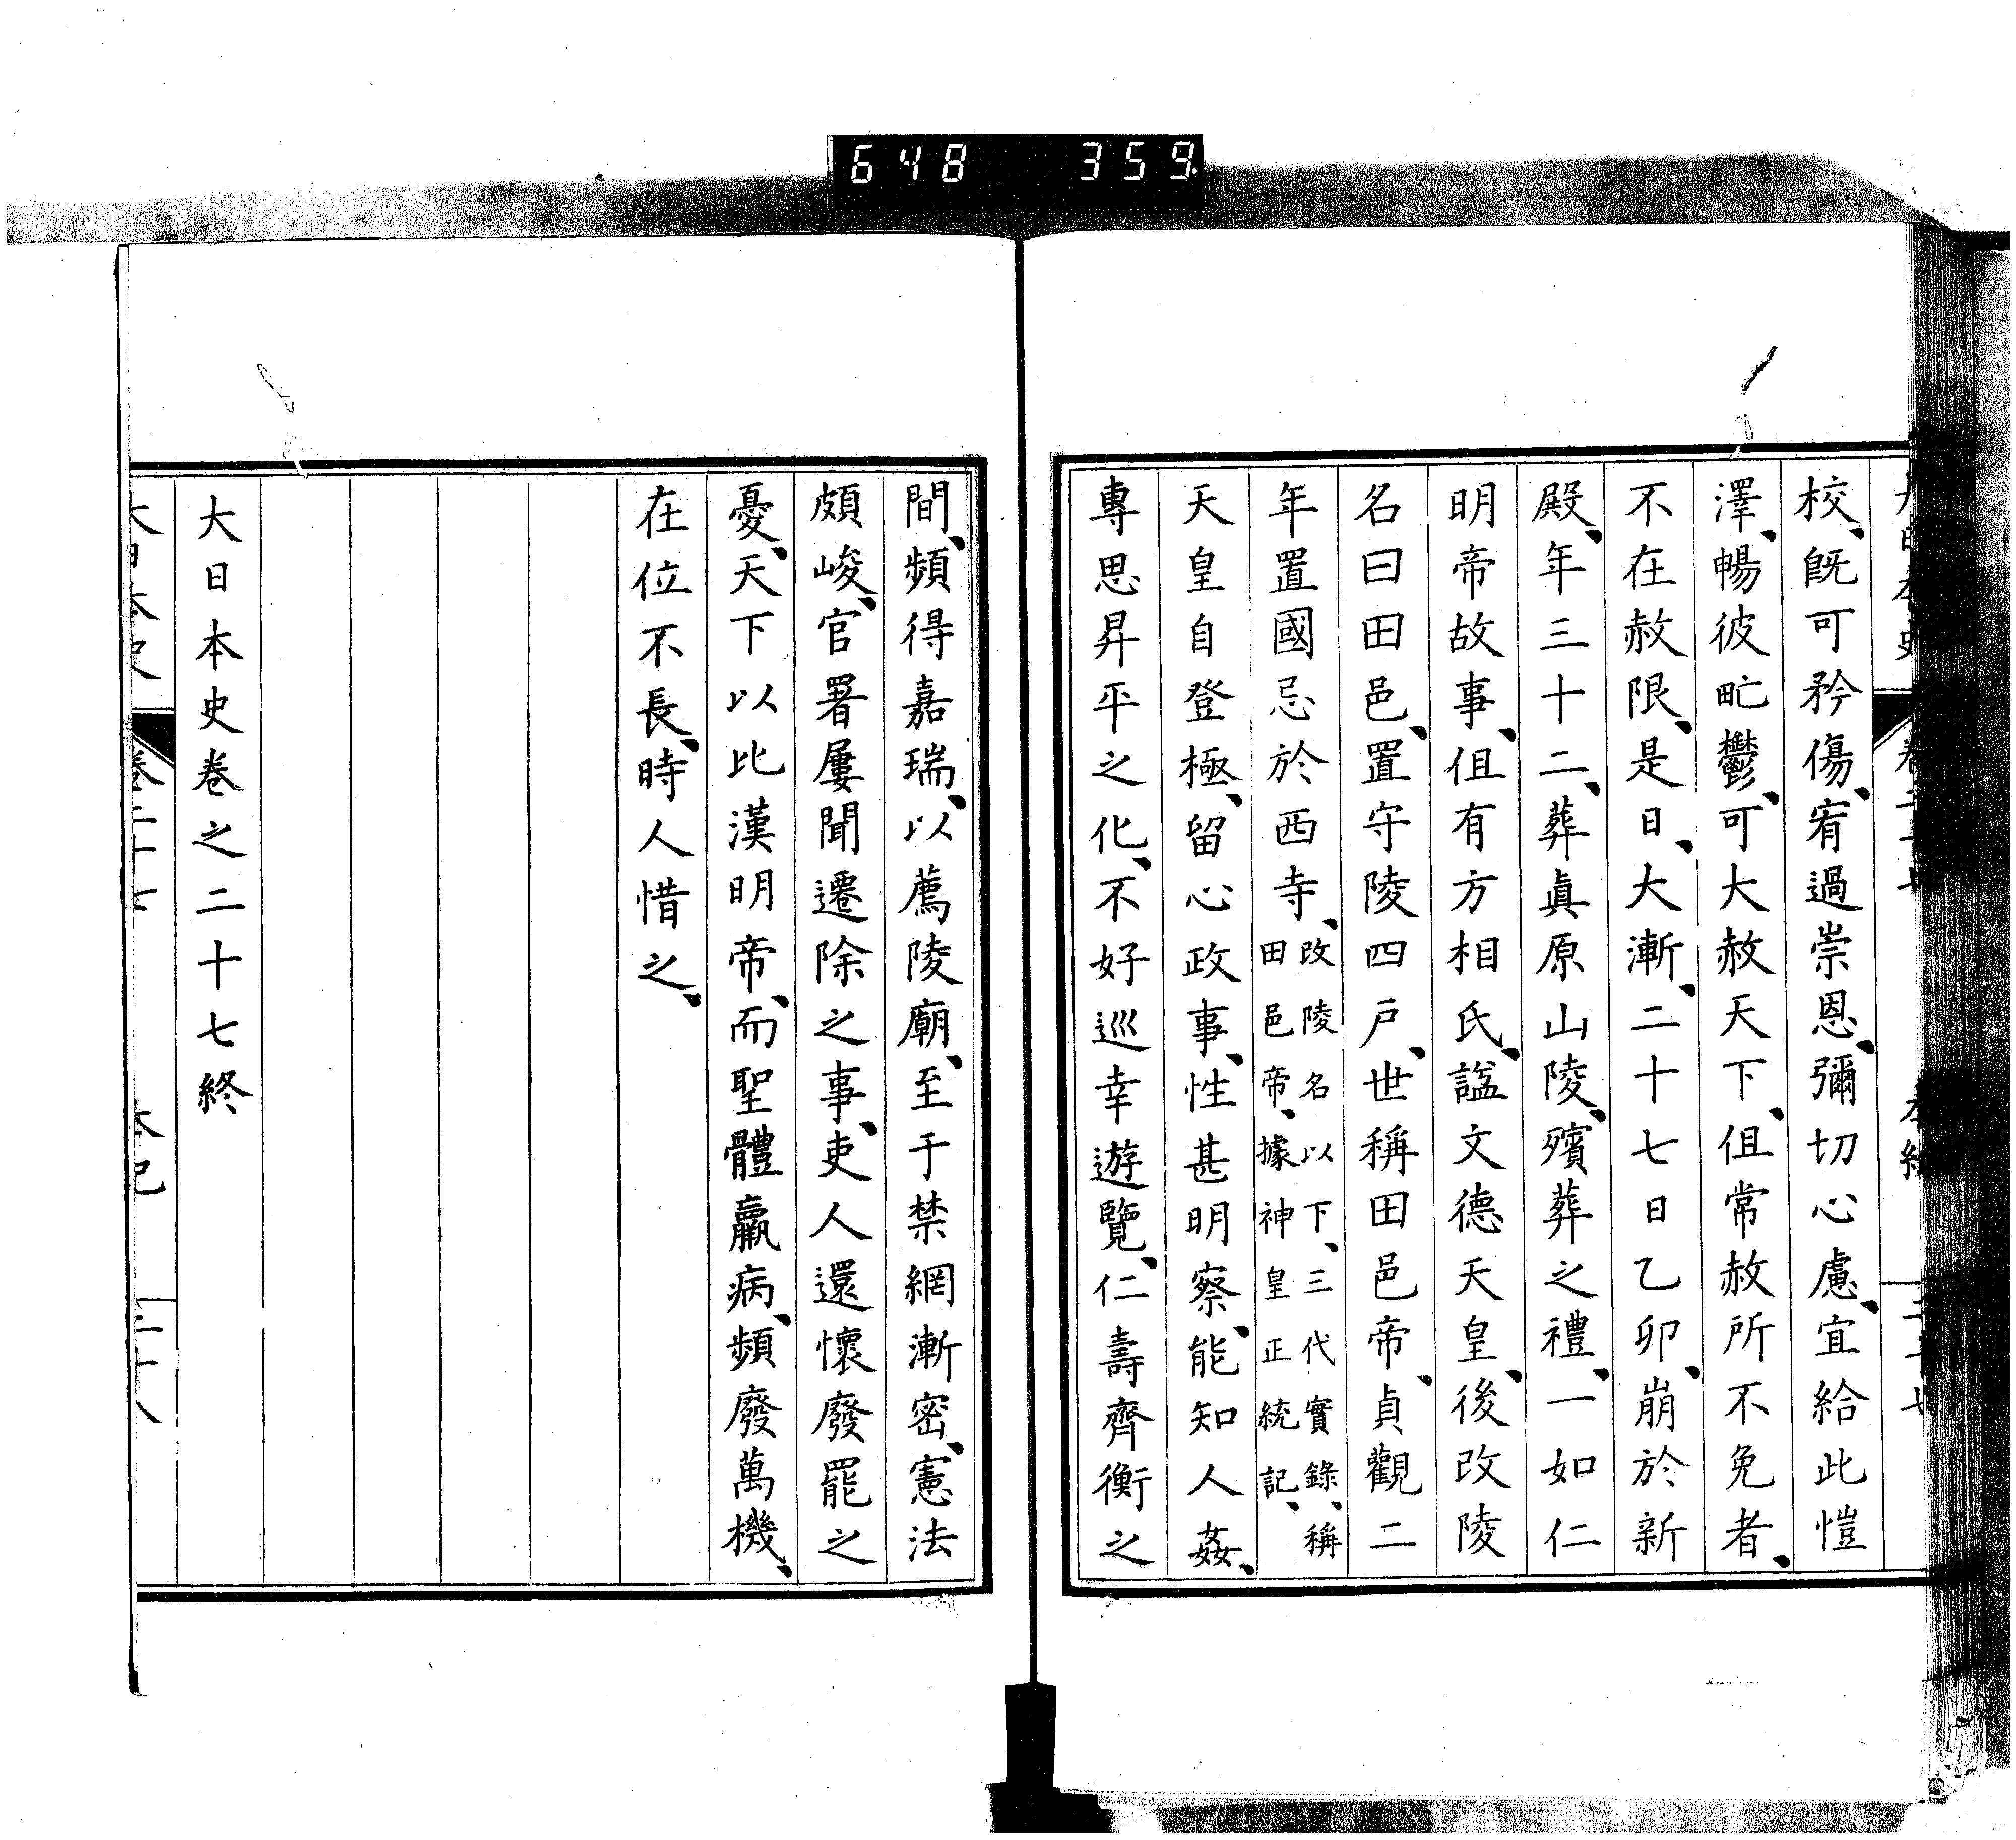 648 359
校、既可矜傷、宥過崇恩、彌切心慮、宜給此愷
澤、暢彼甿鬱、可大赦天下、但常赦所不免者、
不在赦限、是日、大漸、二十七日乙卯、崩於新
殿、年三十二、葬眞原山陵、殯葬之禮、一如仁
明帝故事、但有方相氏、諡文德天皇、後改陵
名曰田邑、置守陵四戶、世稱田邑帝、貞觀二
年置國忌於西寺、改陵名以下、三代實錄、稱
田邑帝、據神皇正統記、
天皇自登極、留心政事、性甚明察、能知人姦、
專思昇平之化、不好巡幸遊覽、仁壽齊衡之
間、頻得嘉瑞、以薦陵廟、至于禁網漸密、憲法
頗峻、官署屢聞遷除之事、吏人還懷廢罷之
憂、天下以比漢明帝、而聖體羸病、頻廢萬機、
在位不長、時人惜之、
大日本史卷之二十七終